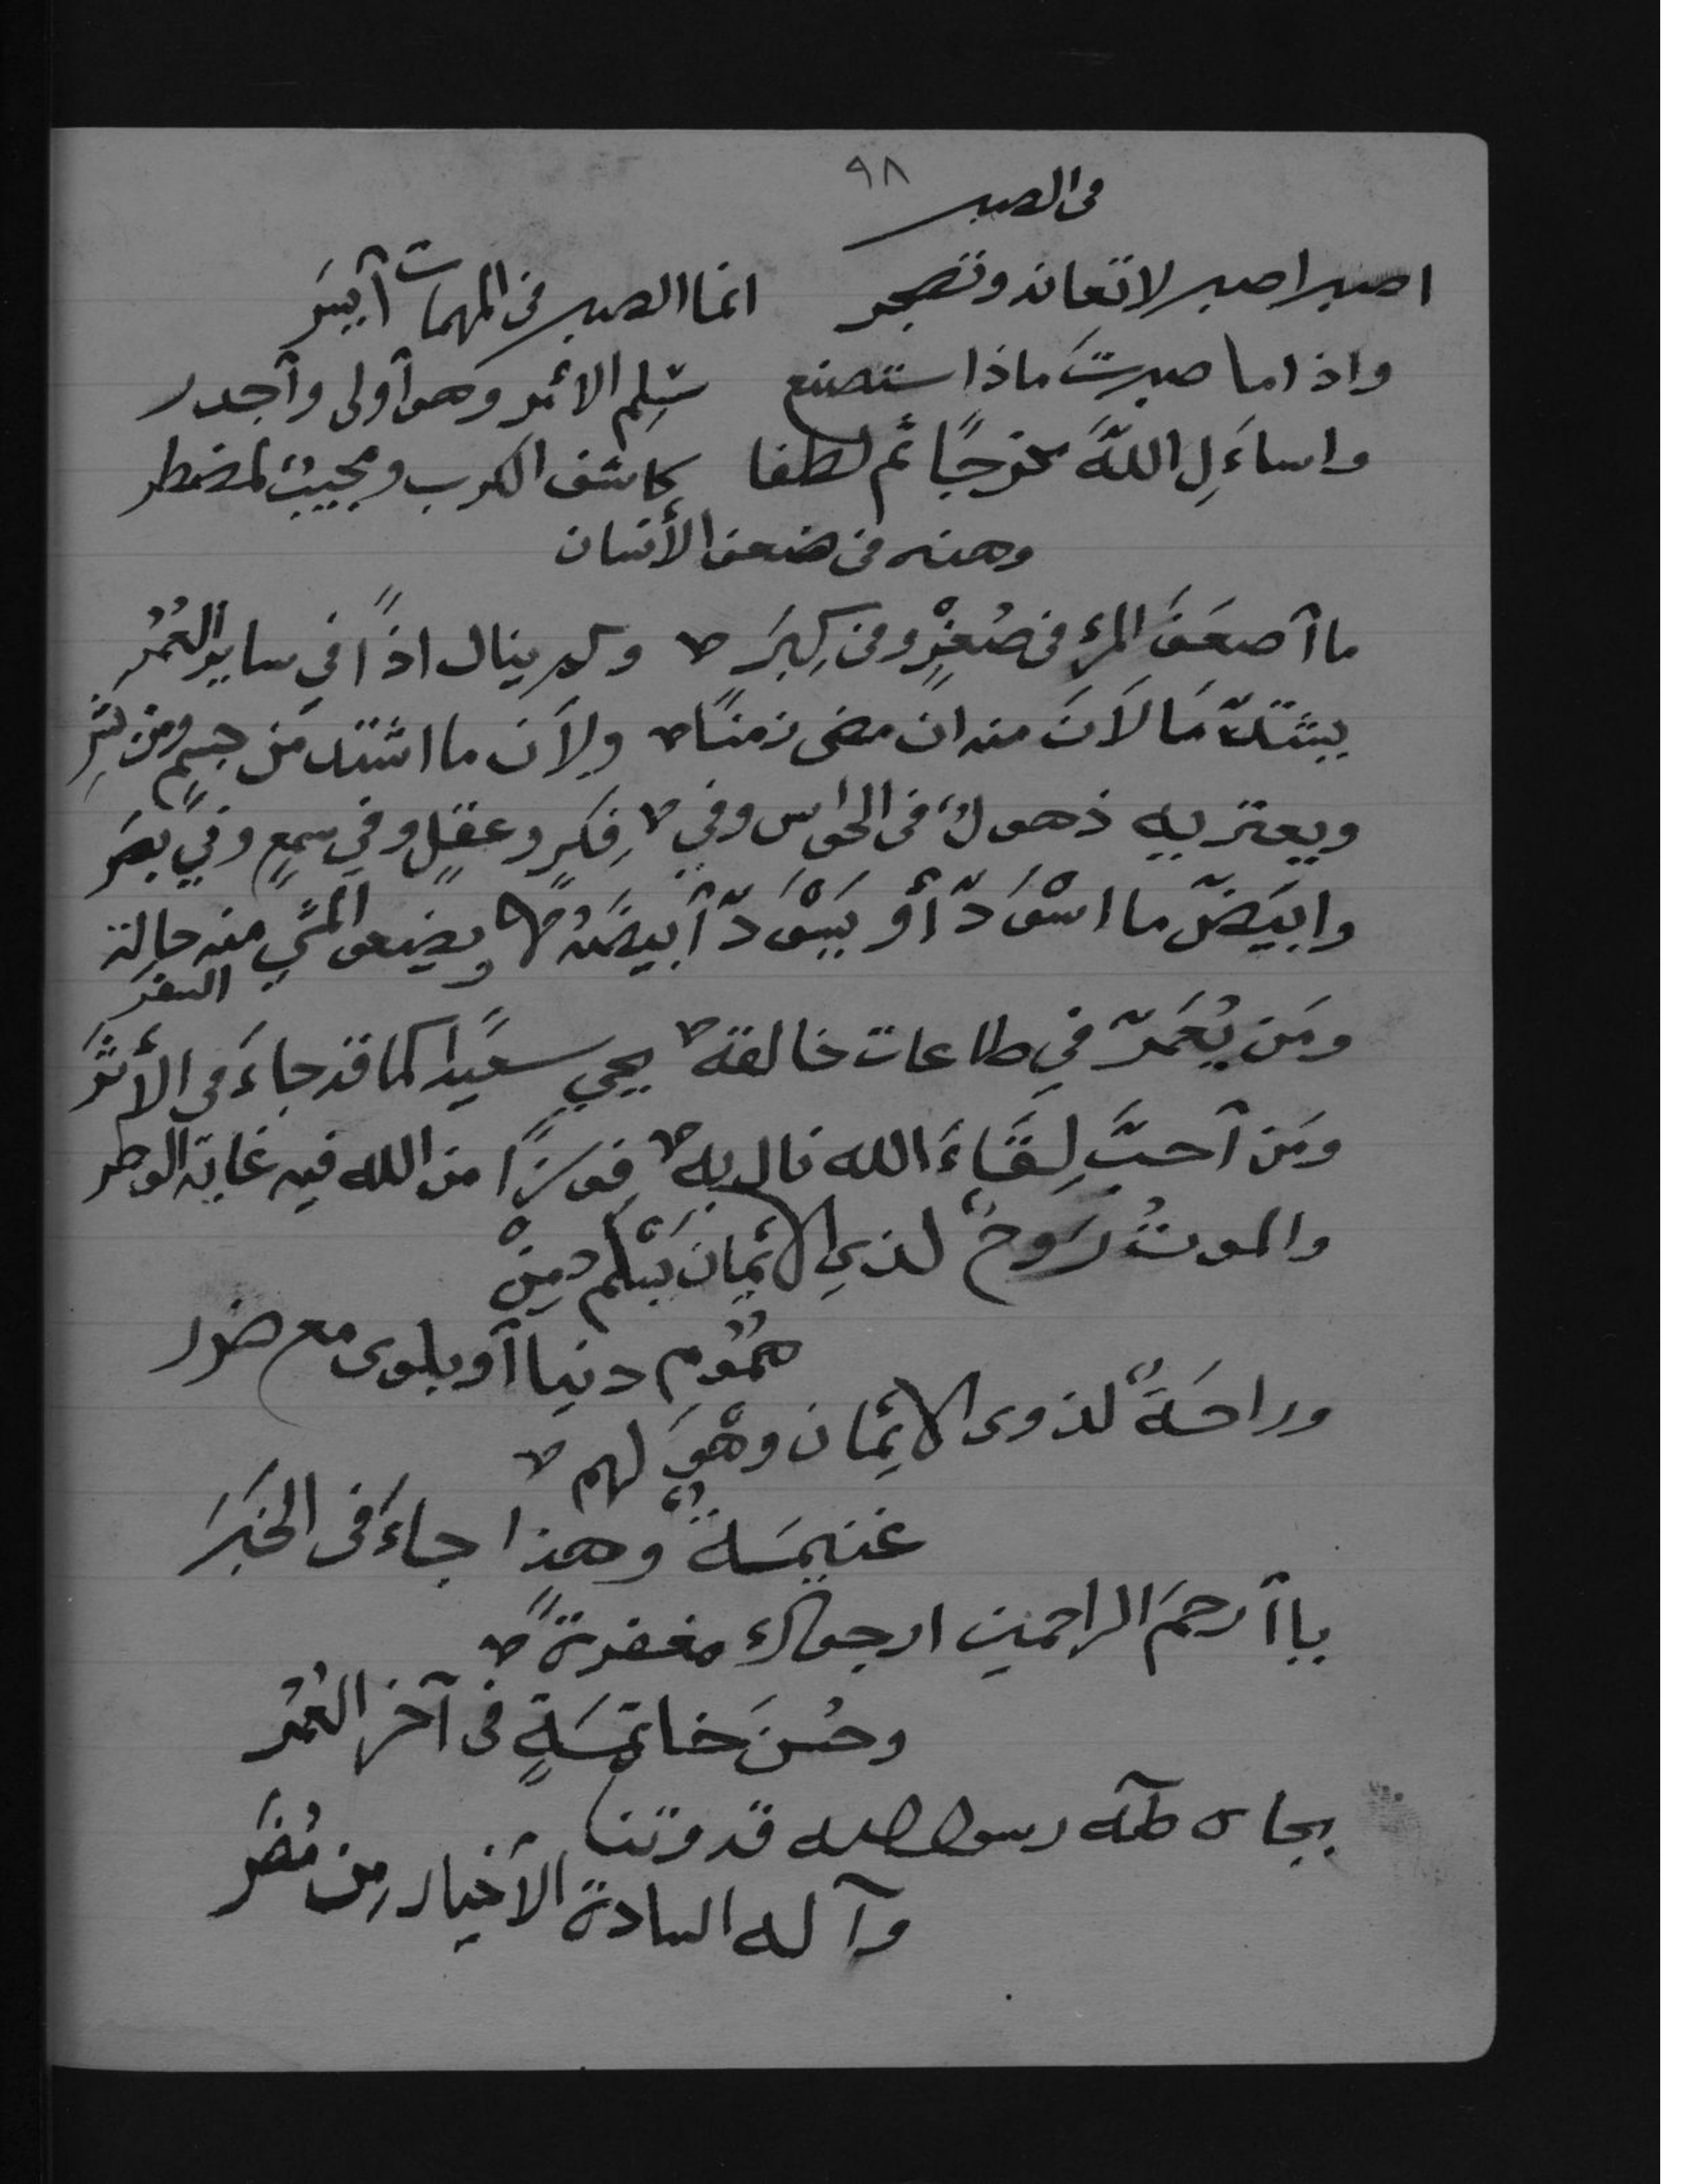 ٩٨
فى الصبر
اصبر اصبر لا تعاند وتضجر انما الصبر فى المهمات آيسَر
واذا ما صبرتَ ماذا ستصنع سَلِم الأمر وهو آولى وآجدر
واساءَلِ اللهَ مخرجًا ثم لطفا كاشف الكرب ومجيبُ المضطر
وهذه فى ضعف الأنسان
ما آضعَفَ المرء فى صُغرٍ وفى كِبَر وكم ينال اذًا في ساير العُمُر
يشتدّ مَا لاَنَ منه ان مضى زمنًا ولاَن ما اشتد مَن جسمٍ ومن بشَرِ
ويعتريه ذهولٌ فى الحواس وفي فِكرٍ وعقلٍ وفي سمعٍ وفي بصَر
وابيَضّ ما اسْوَدّ أو يَسْوَدّ آبيضَهُ ويضعف المشي منه حالة السفر
ومَن يُعَمَرّ في طاعات خالقه يحيي سعيدًا كما قد جاءَ فى الأثَر
ومَن آحبَّ لِقَاءَ الله نال به فوزًا من الله فيه غاية الوطر
والموتُ رَوحٌ لذي الأيمان يَسْلم مِنْ
همُومِ دنيا آو بلوى مع ضرر
وراحَةٌ لذوى الأيمان وهْوَ لهم
غنيمَةٌ وهذا جاءَ فى الخبَر
ياآرحمَ الراحمين ارجوك مغفرةً
وحُسنَ خاتمَةٍ فى آخر العُمُر
بجاه طه رسول الله قدوتنا
وآله السادة الأخيار مِن مُضَر